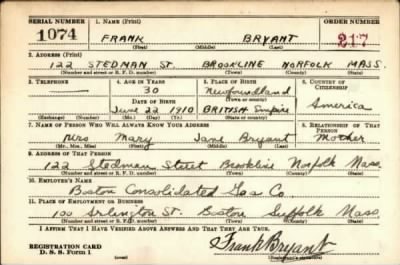 SERIAL NUMBER 1. NAME (Print) ORDER NUMBER
1074 FRANK BRYANT 217
(First) (Middle) (Last)
2. ADDRESS (Print)
122 STEDMAN ST. BROOKLINE NORFOLK MASS.
(Number and street or R. F. D. number) (Town) (County) (State)
3. TELEPHONE 4. AGE IN YEARS 5. PLACE OF BIRTH 6. COUNTRY OF CITIZENSHIP
— 30 Newfoundland
(Town or county)
DATE OF BIRTH
June 22 1910 BRITISH Empire America
(Exchange) (Number) (Mo.) (Day) (Yr.) (State or country)
7. NAME OF PERSON WHO WILL ALWAYS KNOW YOUR ADDRESS 8. RELATIONSHIP OF THAT PERSON
Mrs Mary Jane Bryant Mother
(Mr., Mrs., Miss) (First) (Middle) (Last)
9. ADDRESS OF THAT PERSON
122 Stedman Street Brookline Norfolk Mass
(Number and street or R. F. D. number) (Town) (County) (State)
10. EMPLOYER'S NAME
Boston Consolidated Gas Co.
11. PLACE OF EMPLOYMENT OR BUSINESS
100 Arlington St. Boston Suffolk Mass
(Number and street or R. F. D. number) (Town) (County) (State)
I AFFIRM THAT I HAVE VERIFIED ABOVE ANSWERS AND THAT THEY ARE TRUE.
REGISTRATION CARD
D. S. S. Form 1
Frank Bryant
(Registrant's signature)